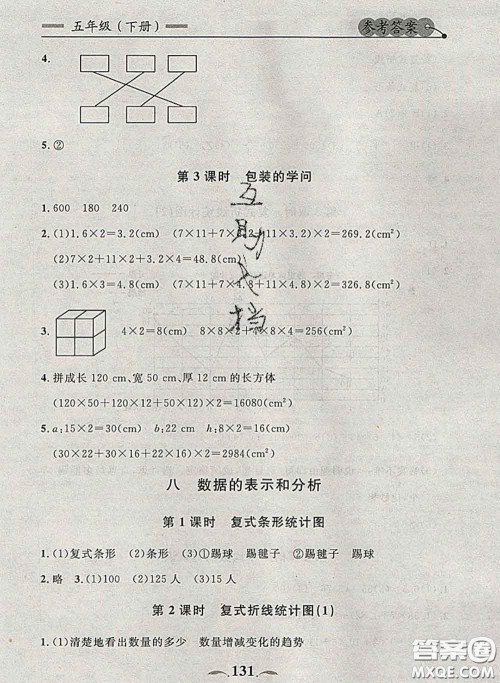 五年级(下册)
参考答案
4.
5.②
第3课时 包装的学问
1.600 180 240
2.(1)1.6×2=3.2(cm) (7×11+7×3.2+11×3.2)×2=269.2(cm²)
(2)7×2+11×2+3.2×4=48.8(cm)
(3)(7×11+7×4.8+11×4.8)×2=326.8(cm²)
3.
4×2=8(cm) 8×8×2+8×4×4=256(cm²)
4.拼成长120 cm、宽50 cm、厚12 cm的长方体
(120×50+120×12+50×12)×2=16080(cm²)
5.a:15×2=30(cm) b:22 cm h:8×2=16(cm)
(30×22+30×16+22×16)×2=2984(cm²)
八 数据的表示和分析
第1课时 复式条形统计图
1.(1)复式条形 (2)条形 (3)①踢球 踢毽子 ②踢毽子 踢球
2.略 3.(1)100 (2)125人 (3)15人
第2课时 复式折线统计图(1)
1.(1)清楚地看出数量的多少 数量增减变化的趋势
131
答案圈
MXQE.COM